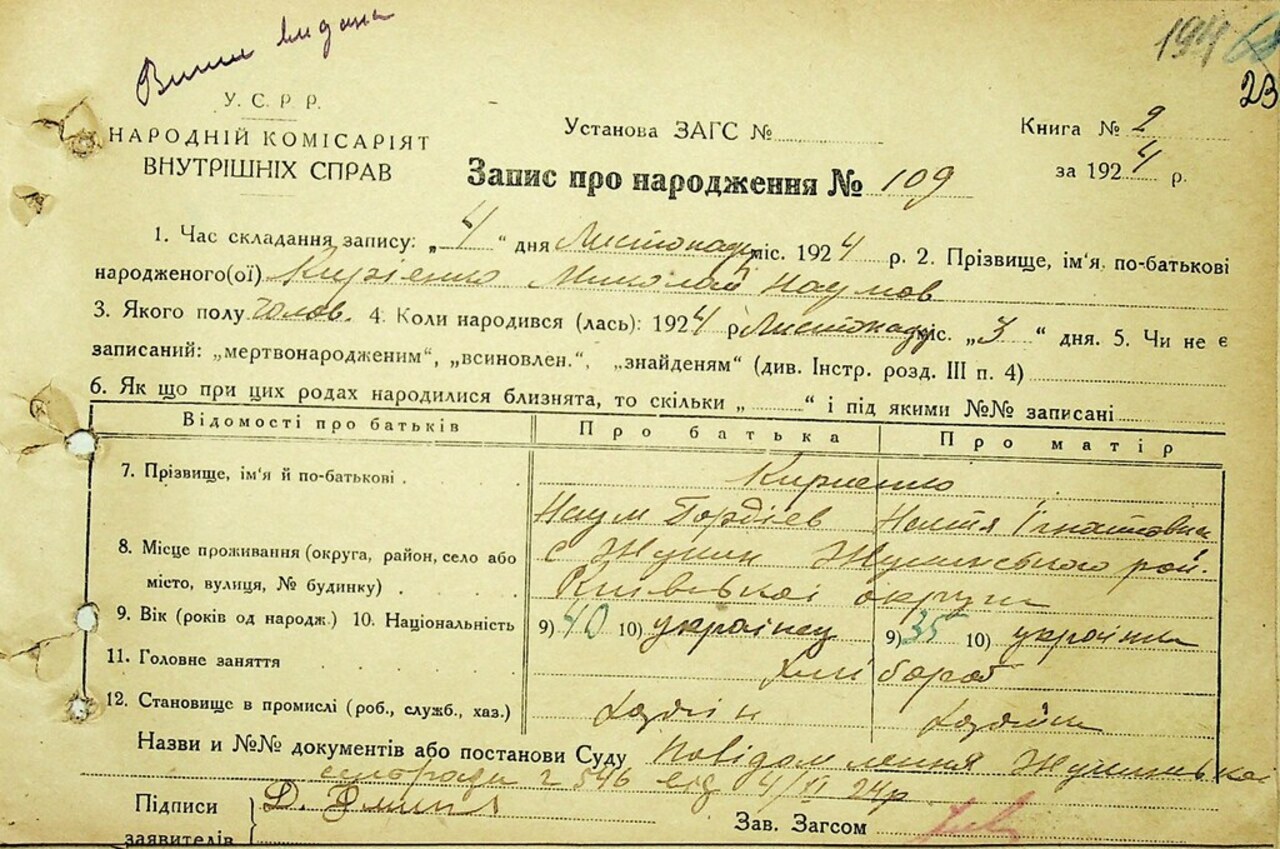 194
23
У. С. Р. Р.
НАРОДНІЙ КОМІСАРІЯТ
ВНУТРІШНІХ СПРАВ
Установа ЗАГС №
Книга № 2
за 1924 р.
Запис про народження № 109
1. Час складання запису: „4“ дня Листопаду міс. 1924 р. 2. Прізвище, ім'я, по-батькові
народженого(ої) Кирієнко Миколай Наумов
3. Якого полу чолов. 4. Коли народився (лась): 1924 р. Листопаду міс. „3“ дня. 5. Чи не є
записаний: „мертвонародженим“, „всиновлен.“, „знайденям“ (див. Інстр. розд. III п. 4)
6. Як що при цих родах народилися близнята, то скільки „ “ і під якими №№ записані
Відомості про батьків Про батька Про матір
7. Прізвище, ім'я й по-батькові
Кириенко
Наум Гордіев Настя Ігнатовна
8. Місце проживання (округа, район, село або
місто, вулиця, № будинку)
с рой.
Київської округи
9. Вік (років од народж.) 10. Національність 9) 40 10) українец 9) 35 10) українка
11. Головне заняття хлібороб
12. Становище в промислі (роб., служб., хаз.)
Назви и №№ документів або постанови Суду Повідомлення
546 від 4/XI 24р
Підписи
заявителів
Зав. Загсом